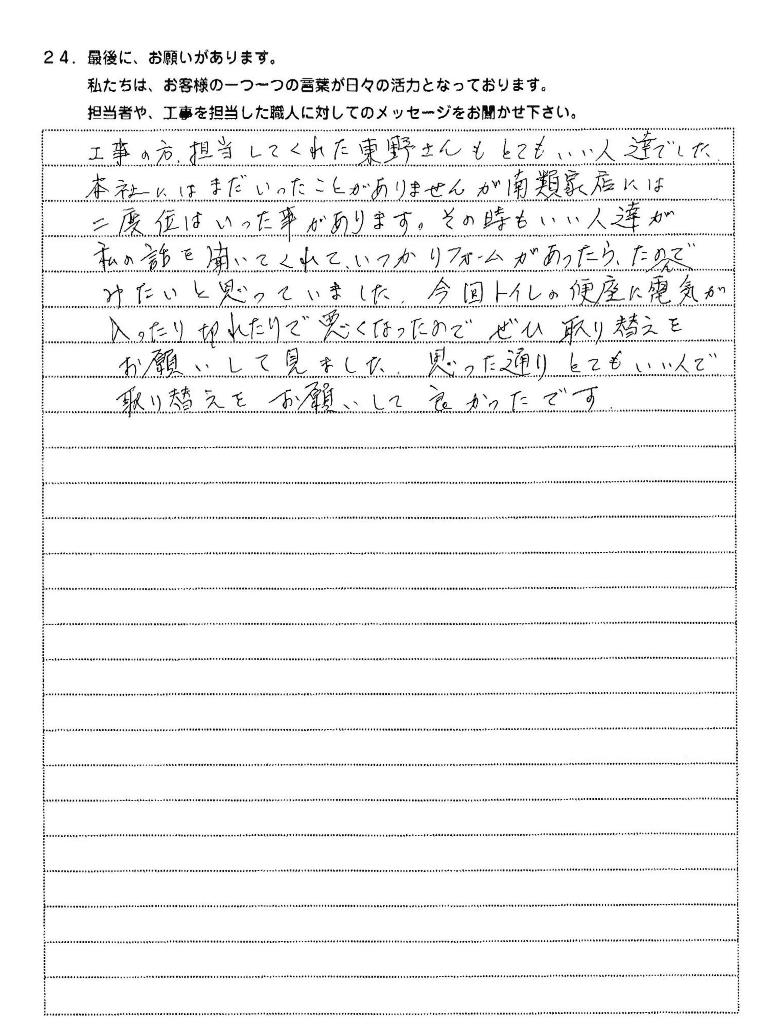 24. 最後に、お願いがあります。
私たちは、お客様の一つ一つの言葉が日々の活力となっております。
担当者や、工事を担当した職人に対してのメッセージをお聞かせ下さい。
工事の方、担当してくれた東野さんもとてもいい人達でした。
本社にはまだいったことがありませんが南類家店には
二度位はいった事があります。その時もいい人達が
私の話を聞いてくれて、いつかリフォームがあったら、たのんで
みたいと思っていました。今回トイレの便座に電気が
入ったり切れたりで悪くなったのでぜひ取り替えを
お願いして見ました。思った通りとてもいい人で
取り替えをお願いして良かったです。